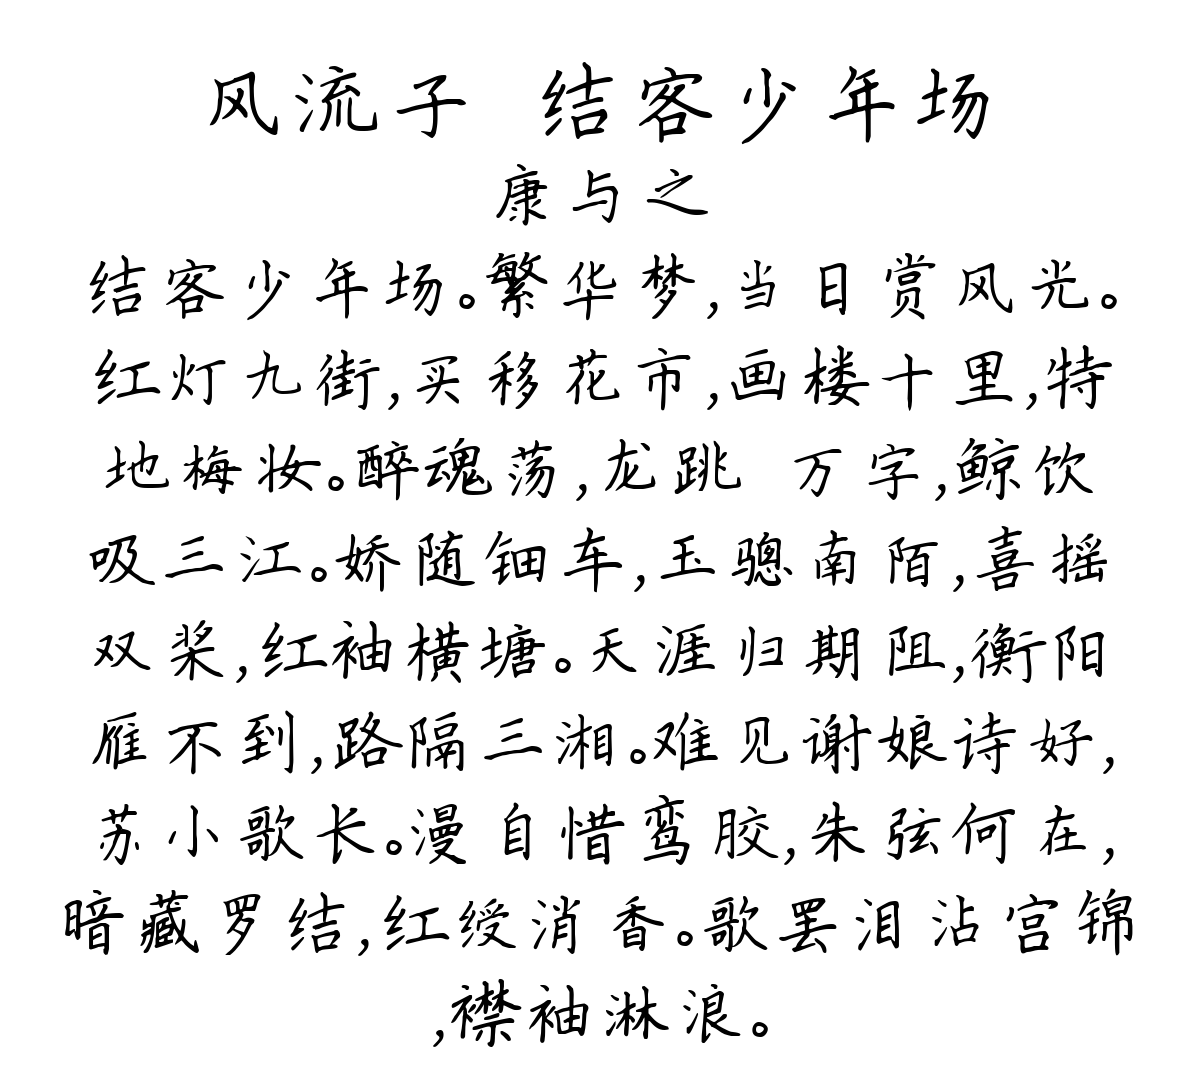 风流子 结客少年场
康与之
结客少年场。繁华梦,当日赏风光。
红灯九街,买移花市,画楼十里,特
地梅妆。醉魂荡,龙跳 万字,鲸饮
吸三江。娇随钿车,玉骢南陌,喜摇
双桨,红袖横塘。天涯归期阻,衡阳
雁不到,路隔三湘。难见谢娘诗好,
苏小歌长。漫自惜鸾胶,朱弦何在,
暗藏罗结,红绶消香。歌罢泪沾宫锦
,襟袖淋浪。